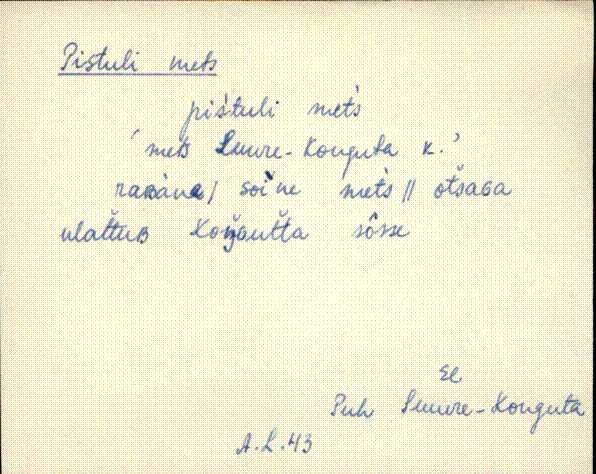 Pistuli mets
pis̀tuli met̀s
'mets Suure-Konguta k.'
raʙàne/ soìne met̀s // otsaɢa
ulattuʙ Koŋɢutta sôsse
EE
Puh Suure-Konguta
A.L. 43